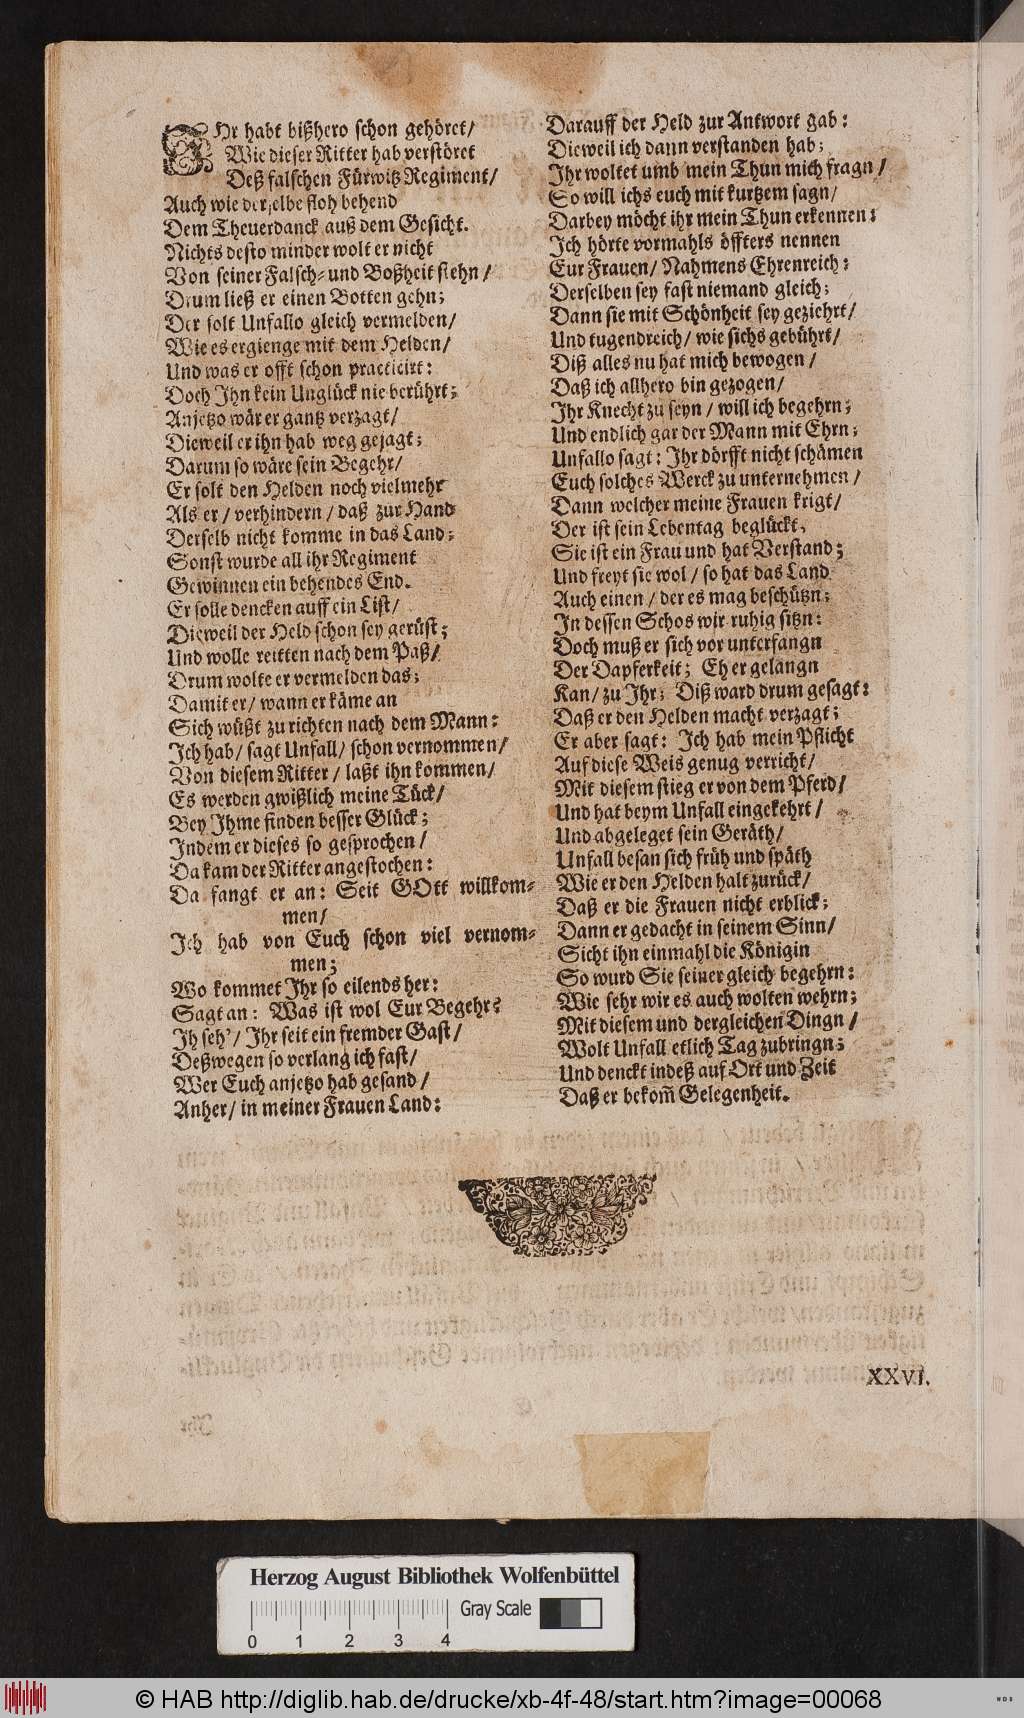 IHr habt bißhero schon gehöret/
Wie dieser Ritter hab verstöret
Deß falschen Fürwitz Regiment/
Auch wie derselbe floh behend
Dem Theuerdanck auß dem Gesicht.
Nichts desto minder wolt er nicht
Von seiner Falsch- und Boßheit stehn/
Drum ließ er einen Botten gehn;
Der solt Unfallo gleich vermelden/
Wie es ergienge mit dem Helden/
Und was er offt schon practicirt:
Doch Ihn kein Unglück nie berührt;
Anjetzo wär er gantz verzagt/
Dieweil er ihn hab weg gejagt;
Darum so wäre sein Begehr/
Er solt den Helden noch vielmehr
Als er/ verhindern/ daß zur Hand
Derselb nicht komme in das Land;
Sonst wurde all ihr Regiment
Gewinnen ein behendes End.
Er solle dencken auff ein List/
Dieweil der Held schon sey gerüst;
Und wolle reitten nach dem Paß/
Drum wolte er vermelden das;
Damit er/ wann er käme an
Sich wüßt zu richten nach dem Mann:
Ich hab/ sagt Unfall/ schon vernommen/
Von diesem Ritter/ laßt ihn kommen/
Es werden gwißlich meine Tück/
Bey Ihme finden besser Glück;
Indem er dieses so gesprochen/
Da kam der Ritter angestochen:
Da fangt er an: Seit GOtt willkom-
men/
Ich hab von Euch schon viel vernom-
men;
Wo kommet Ihr so eilends her:
Sagt an: Was ist wol Eur Begehr?
Ih seh'/ Ihr seit ein fremder Gast/
Deßwegen so verlang ich fast/
Wer Euch anjetzo hab gesand/
Anher/ in meiner Frauen Land:
Darauff der Held zur Antwort gab:
Dieweil ich dann verstanden hab;
Ihr woltet umb mein Thun mich fragn/
So will ichs euch mit kurtzem sagn/
Darbey möcht ihr mein Thun erkennen:
Ich hörte vormahls öffters nennen
Eur Frauen/ Nahmens Ehrenreich:
Derselben sey fast niemand gleich;
Dann sie mit Schönheit sey geziehrt/
Und tugendreich/ wie sichs gebührt/
Diß alles nu hat mich bewogen/
Daß ich allhero bin gezogen/
Ihr Knecht zu seyn/ will ich begehrn;
Und endlich gar der Mann mit Ehrn;
Unfallo sagt: Ihr dörfft nicht schämen
Euch solches Werck zu unternehmen/
Dann welcher meine Frauen krigt/
Der ist sein Lebentag beglückt,
Sie ist ein Frau und hat Verstand;
Und freyt sie wol/ so hat das Land
Auch einen/ der es mag beschützn;
In dessen Schos wir ruhig sitzn:
Doch muß er sich vor unterfangn
Der Dapferkeit; Eh er gelangn
Kan/ zu Ihr; Diß ward drum gesagt:
Daß er den Helden macht verzagt;
Er aber sagt: Ich hab mein Pflicht
Auf diese Weis genug verricht/
Mit diesem stieg er von dem Pferd/
Und hat beym Unfall eingekehrt/
Und abgeleget sein Geräth/
Unfall besan sich früh und späth
Wie er den Helden halt zurück/
Daß er die Frauen nicht erblick;
Dann er gedacht in seinem Sinn/
Sicht ihn einmahl die Königin
So wurd Sie seiner gleich begehrn:
Wie sehr wir es auch wolten wehrn;
Mit diesem und dergleichen Dingn/
Wolt Unfall etlich Tag zubringn;
Und denckt indeß auf Ort und Zeit
Daß er bekom̄ Gelegenheit.
XXVI.
Herzog August Bibliothek Wolfenbüttel
Gray Scale
0 1 2 3 4
© HAB http://diglib.hab.de/drucke/xb-4f-48/start.htm?image=00068